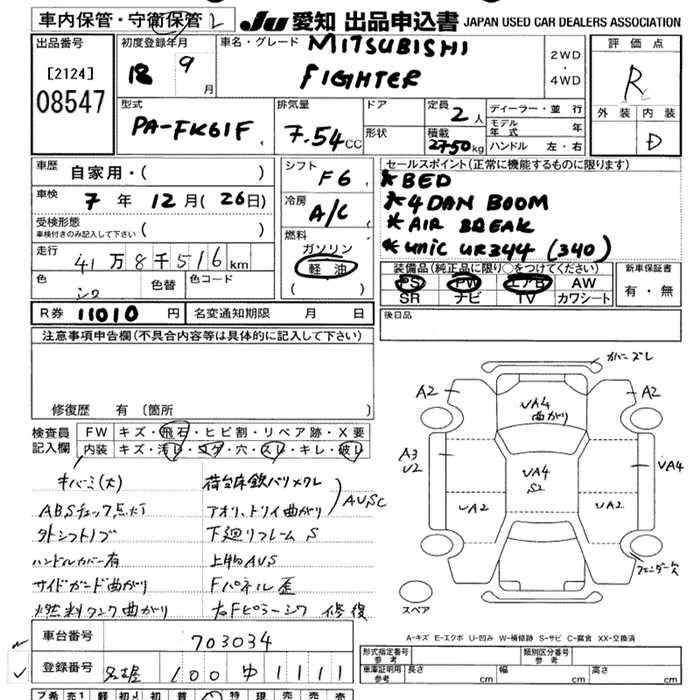 車内保管・守衛保管 L
JU 愛知 出品申込書 JAPAN USED CAR DEALERS ASSOCIATION
出品番号
[2124]
08547
初度登録年月
18 9 月
車名・グレード
MITSUBISHI
FIGHTER
2WD
・
4WD
評価点
R
外装 内装
D
型式
PA-FK61F
排気量
7.54 CC
ドア
形状
定員 2 人
積載 2750 kg
ディーラー・並行
モデル年式 年
ハンドル 左・右
車歴 自家用・( )
車検 7 年 12 月 (26日)
受検形態
車検付きのみ記入して下さい ( )
走行 41万8千516 km
色 シロ
色替
色コード
シフト F6
冷房 A/C
燃料
ガソリン
軽油
( )
セールスポイント(正常に機能するものに限ります)
* BED
* 4 DAN BOOM
* AIR BREAK
* UNIC UR344 (340)
装備品(純正品に限り○をつけてください)
PS PW エアB AW
SR ナビ TV カワシート
新車保証書
有・無
R券 11010 円
名変通知期限 月 日
後日品
注意事項申告欄(不具合内容等は具体的に記入して下さい)
修復歴 有 〔箇所 〕
検査員記入欄
FW キズ・飛石・ヒビ割・リペア跡・X要
内装 キズ・汚レ・コゲ・穴・スレ・キレ・破レ
キバミ(大)
ABSチェック点灯
外シフトノブ
ハンドルカバー有
サイドガード曲がり
燃料タンク曲がり
荷台床鉄バリメクレ
アオリ、トリイ曲がり
AUSC
下廻リフレームS
上物AUS
Fパネル歪
右Fピラーシワ 修復
カバーズレ
A2
UA4
曲がり
A2
A3
U2
UA4
S2
UA4
UA2
UA2
フェンダー欠
スペア
A-キズ E-エクボ U-凹み W-補修跡 S-サビ C-腐食 XX-交換済
車台番号 703034
登録番号 名古屋 100 ゆ 1111
形式指定番号
参考
類別区分番号
参考
車庫証明用
参考
長さ cm
幅 cm
高さ cm